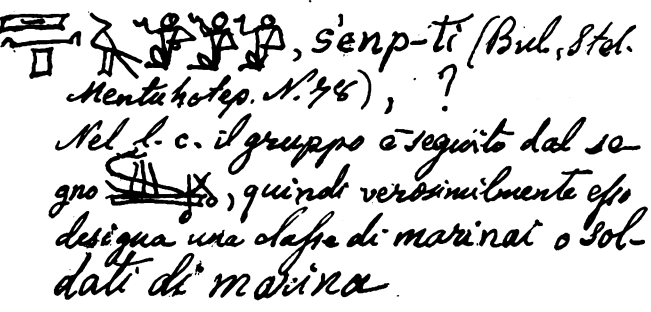 , s'enp-ti (Bul., Stel.
Mentuhotep. N. 78), ?
Nel l. c. il gruppo è seguito dal se-
gno , quindi verosimilmente esso
designa una classe di marinai o sol-
dati di marina